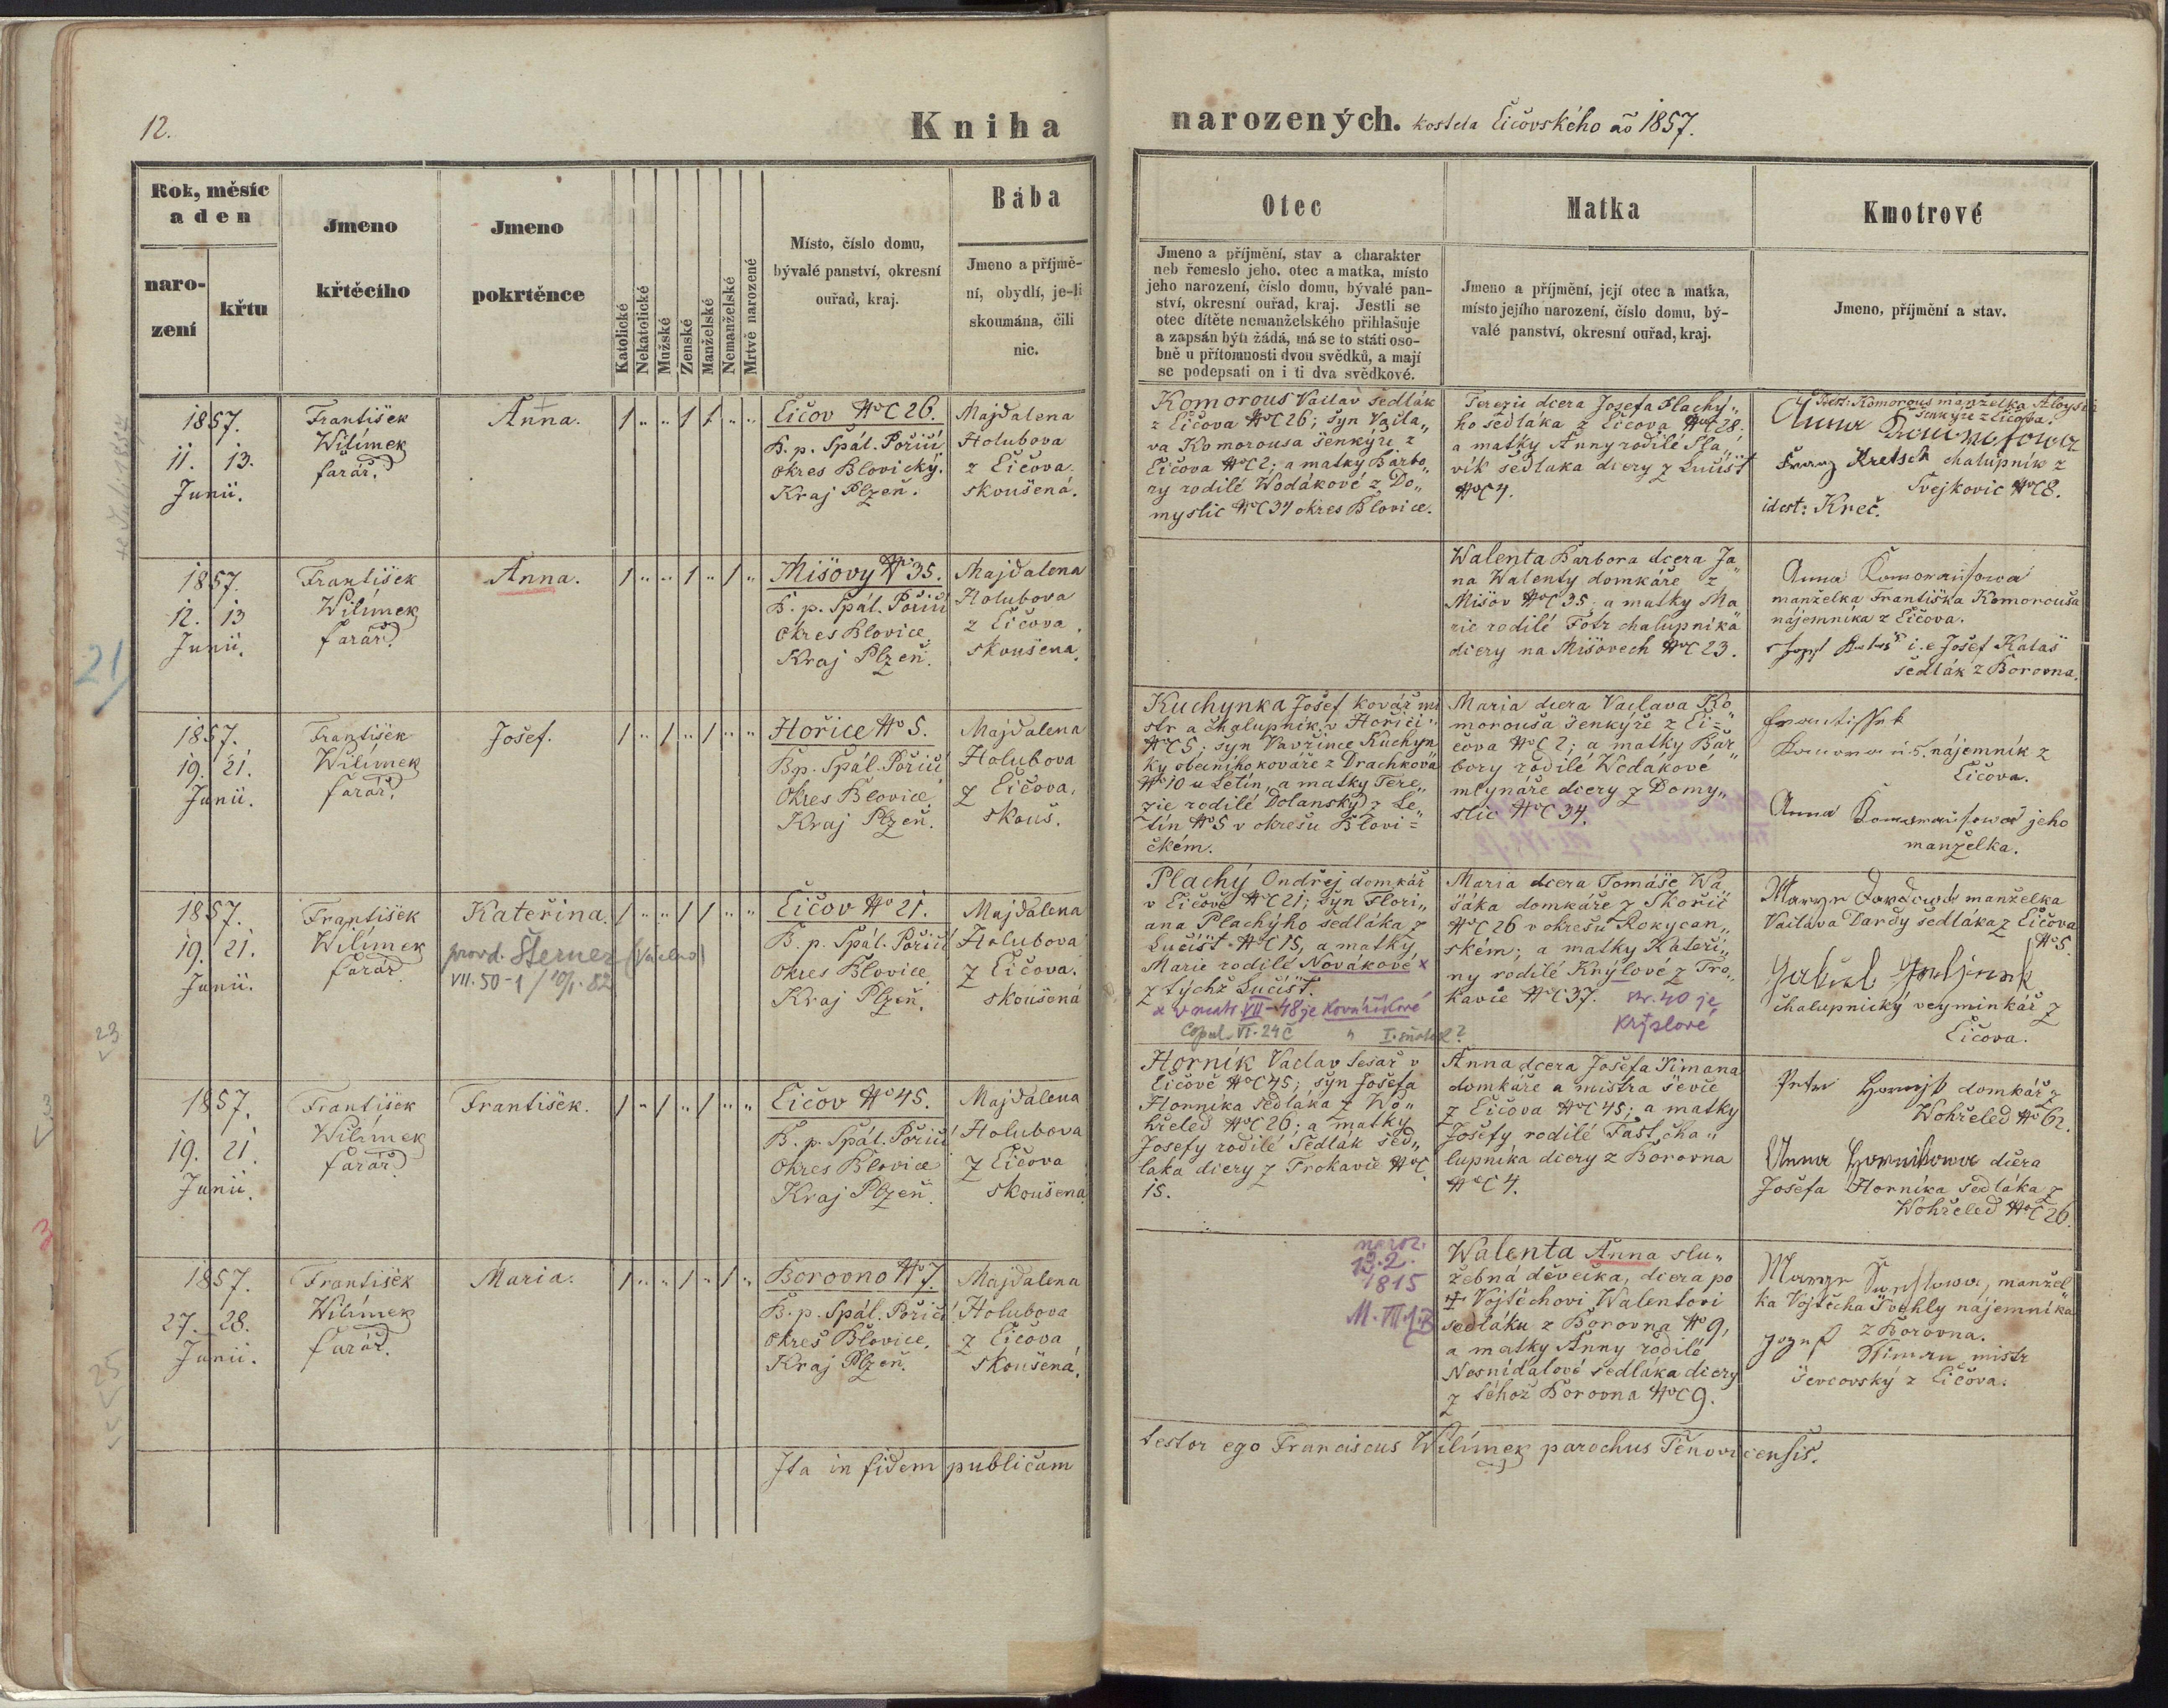 12.
Kniha
narozených. kostela Čičovského ao 1857.
Rok, měsíc
a den
naro-
zení
křtu
Jmeno
křtěcího
Jmeno
pokrtěnce
Katolické
Nekatolické
Mužské
Ženské
Manželské
Nemanželské
Mrtvě narozené
Místo, číslo domu,
bývalé panství, okresní
ouřad, kraj.
Bába
Jmeno a příjmě-
ní, obydlí, je-li
skoumána, čili
nic.
Otec
Jmeno a příjmění, stav a charakter
neb řemeslo jeho, otec a matka, místo
jeho narození, číslo domu, bývalé pan-
ství, okresní ouřad, kraj. Jestli se
otec dítěte nemanželského přihlašuje
a zapsán býti žádá, má se to státi oso-
bně u přítomnosti dvou svědků, a mají
se podepsati on i ti dva svědkové.
Matka
Jmeno a příjmění, její otec a matka,
místo jejího narození, číslo domu, bý-
valé panství, okresní ouřad, kraj.
Kmotrové
Jmeno, příjmění a stav.
1857.
11. 13.
Junii.
František
Wilímek
farář.
Anna.
1 " " 1 1 " "
Čičov NC 26.
B. p. Spál. Pořičí
okres Blovický.
Kraj Plzeň.
Majdalena
Holubova
z Čičova.
skoušená.
Komorous Vaclav sedlák
z Čičova NC 26; syn Vacla„
va Komorousa šenkýře z
Čičova NC 2; a matky Barbo„
ry rodilé Wodákové z Do„
myslic NC 34 okres Blovice.
Terezie dcera Josefa Plachý„
ho sedláka z Čičova NC 28.
a matky Anny rodilé Sla„
vík sedlaka dcery z Lučišť
NC 4.
Idest: Komorous manželka Aloysia
šenkýře z Čičova.
Anna Komorousowa
Franz Kretsch chalupník z
Svejkovic NC 8.
idest: Kreč.
1857.
12. 13
Junii.
František
Wilímek
farář.
Anna.
1 " " 1 " 1 "
Mišovy No 35.
B. p. Spál. Pořičí
okres Blovice.
Kraj Plzeň.
Majdalena
Holubova
z Čičova.
skoušena.
Walenta Barbora dcera Ja„
na Walenty domkáře z
Mišov NC 35; a matky Ma„
rie rodilé Fotr chalupníka
dcery na Mišovech NC 23.
Anna Komorausowa
manželka Františka Komorousa
nájemníka z Čičova.
i.e Josef Kalaš
sedlák z Borovna.
21/
1857.
19. 21.
Junii.
František
Wilímek
farář.
Josef.
1 " 1 " 1 " "
Hořice No 5.
B. p. Spál. Pořičí
Okres Blovice.
Kraj Plzeň.
Majdalena
Holubova
z Čičova.
skouš.
Kuchynka Josef kovář mi
str a chalupník v Hořici„
NC 5; syn Vavřince Kuchyn
ky obecního kováře z Drachkova
No 10 u Letin, a matky Tere„
zie rodilé Dolanský z Le„
tín No 5 v okresu Blovi=
čkém.
Maria dcera Vaclava Ko„
morousa šenkýře z Či=
čova NC 2; a matky Bar„
bory rodilé Wodákové
mlynáře dcery z Domy„
slic NC 34.
Frantissek
Komoraus. nájemník z
Čičova.
Anna Komorausowa jeho
manželka.
1857.
19. 21.
Junii.
František
Wilímek
farář.
Kateřina.
provd. Šterner
VII. 50-1 / 10/1. 82
1 " " 1 1 " "
Čičov No 21.
B. p. Spál. Pořičí
Okres Blovice.
Kraj Plzeň.
Majdalena
Holubova
z Čičova.
skoušená
Plachý Ondřej domkář
v Čičově NC 21; syn Flori„
ana Plachýho sedláka z
Lučišť NC 15, a matky
Marie rodilé Novákové x
z tychž Lučišť.
x v matr. VII-48 je Kovaříkové
Copul. VI. 24 č " I. sňatek?
Maria dcera Tomáše Wa„
sáka domkáře z Skořič
NC 26 v okresu Rokycan„
ském; a matky Kateři„
ny rodilé Knýlové z Tro„
kavic NC 37. str. 40 je
Krýslové
manželka
Vaclava Dardy sedláka z Čičova
No 5
chalupnický veyminkář z
Čičova.
23
1857.
19. 21.
Junii.
František
Wilímek
farář.
František.
1 " 1 " 1 " "
Čičov No 45.
B. p. Spál. Pořičí
Okres Blovice
Kraj Plzeň.
Majdalena
Holubova
z Čičova
skoušena
Horník Vaclav tesař v
Čičově NC 45; syn Josefa
Horníka sedláka z Wo„
hřeled NC 26; a matky
Josefy rodilé Sedlák sed„
laka dcery z Trokavic NC
15.
Anna dcera Josefa Šimana
domkáře a mistra ševce
z Čičova NC 45; a matky
Josefy rodilé Fast cha„
lupníka dcery z Borovna
NC 4.
domkář z
Wohřeled No 62.
Anna Hornikowa dcera
Josefa Horníka sedláka z
Wohřeled NC 26.
3
1857.
27. 28.
Junii.
František
Wilímek
farář.
Maria.
1 " " 1 " 1 "
Borovno No 7.
B. p. Spál. Pořičí
okres Blovice.
Kraj Plzeň.
Majdalena
Holubova
z Čičova
skoušená.
naroz.
13.2.
1815
Walenta Anna slu„
žebná děvečka, dcera po
† Vojtěchovi Walentovi
sedláku z Borovna No 9,
a matky Anny rodilé
Nesnídalové sedláka dcery
z téhož Borovna NC 9.
manžel„
ka Vojtěcha Švehly nájemníka
z Borovna.
Josef Šiman mistr
ševcovský z Čičova.
25
Ita in fidem publicam
testor ego Franciscus Wilímek parochus Těnovicensis.